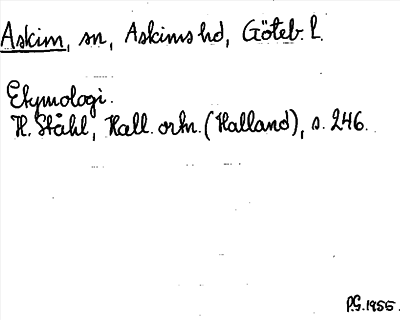 Askim, sn, Askims hd, Göteb. l.
Etymologi.
H. Ståhl, Hall. ortn. (Halland), s. 246.
P.G. 1955.